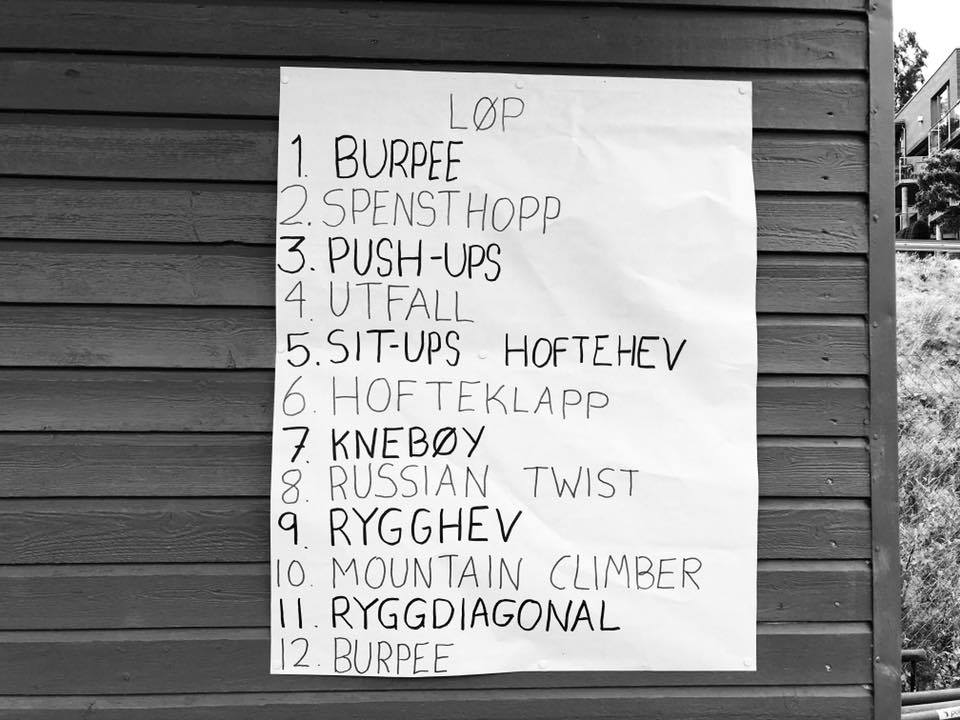 LØP
1. BURPEE
2. SPENSTHOPP
3. PUSH-UPS
4. UTFALL
5. SIT-UPS HOFTEHEV
6. HOFTEKLAPP
7. KNEBØY
8. RUSSIAN TWIST
9. RYGGHEV
10. MOUNTAIN CLIMBER
11. RYGGDIAGONAL
12. BURPEE